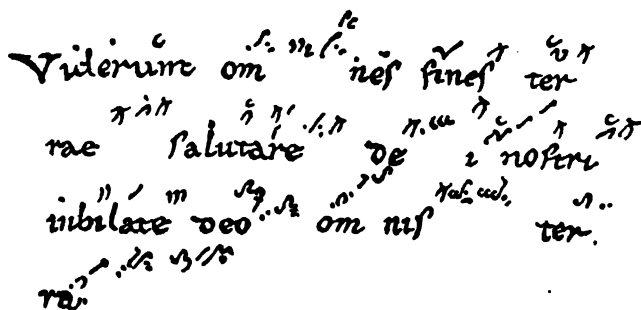 Viderunt om nes fines ter
rae salutare de i nostri
iubilate deo om nis ter.
ra.